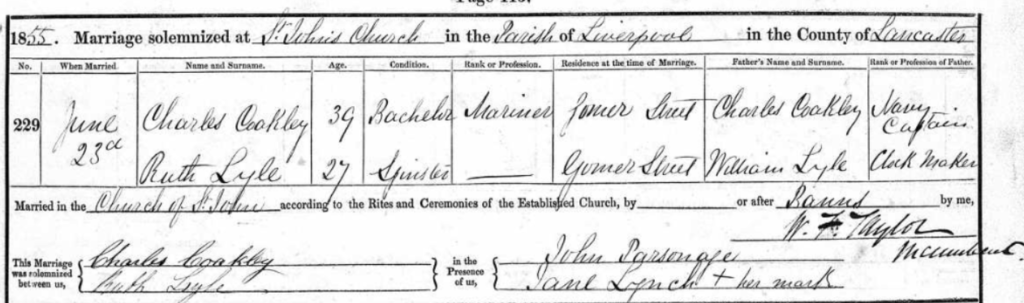 Page 115.
1855. Marriage solemnized at St. John's Church in the Parish of Liverpool in the County of Lancaster
No. When Married. Name and Surname. Age. Condition. Rank or Profession. Residence at the time of Marriage. Father's Name and Surname. Rank or Profession of Father.
229 June 23d Charles Coakley 39 Bachelor Mariner Gomer Street Charles Coakley Navy Captain
Ruth Lyle 27 Spinster — Gomer Street William Lyle Clock Maker
Married in the Church of St. John according to the Rites and Ceremonies of the Established Church, by or after Banns by me,
W. F. Taylor
Incumbent.
This Marriage was solemnized between us, Charles Coakley in the Presence of us, John Parsonage
Ruth Lyle Jane Lynch + her mark